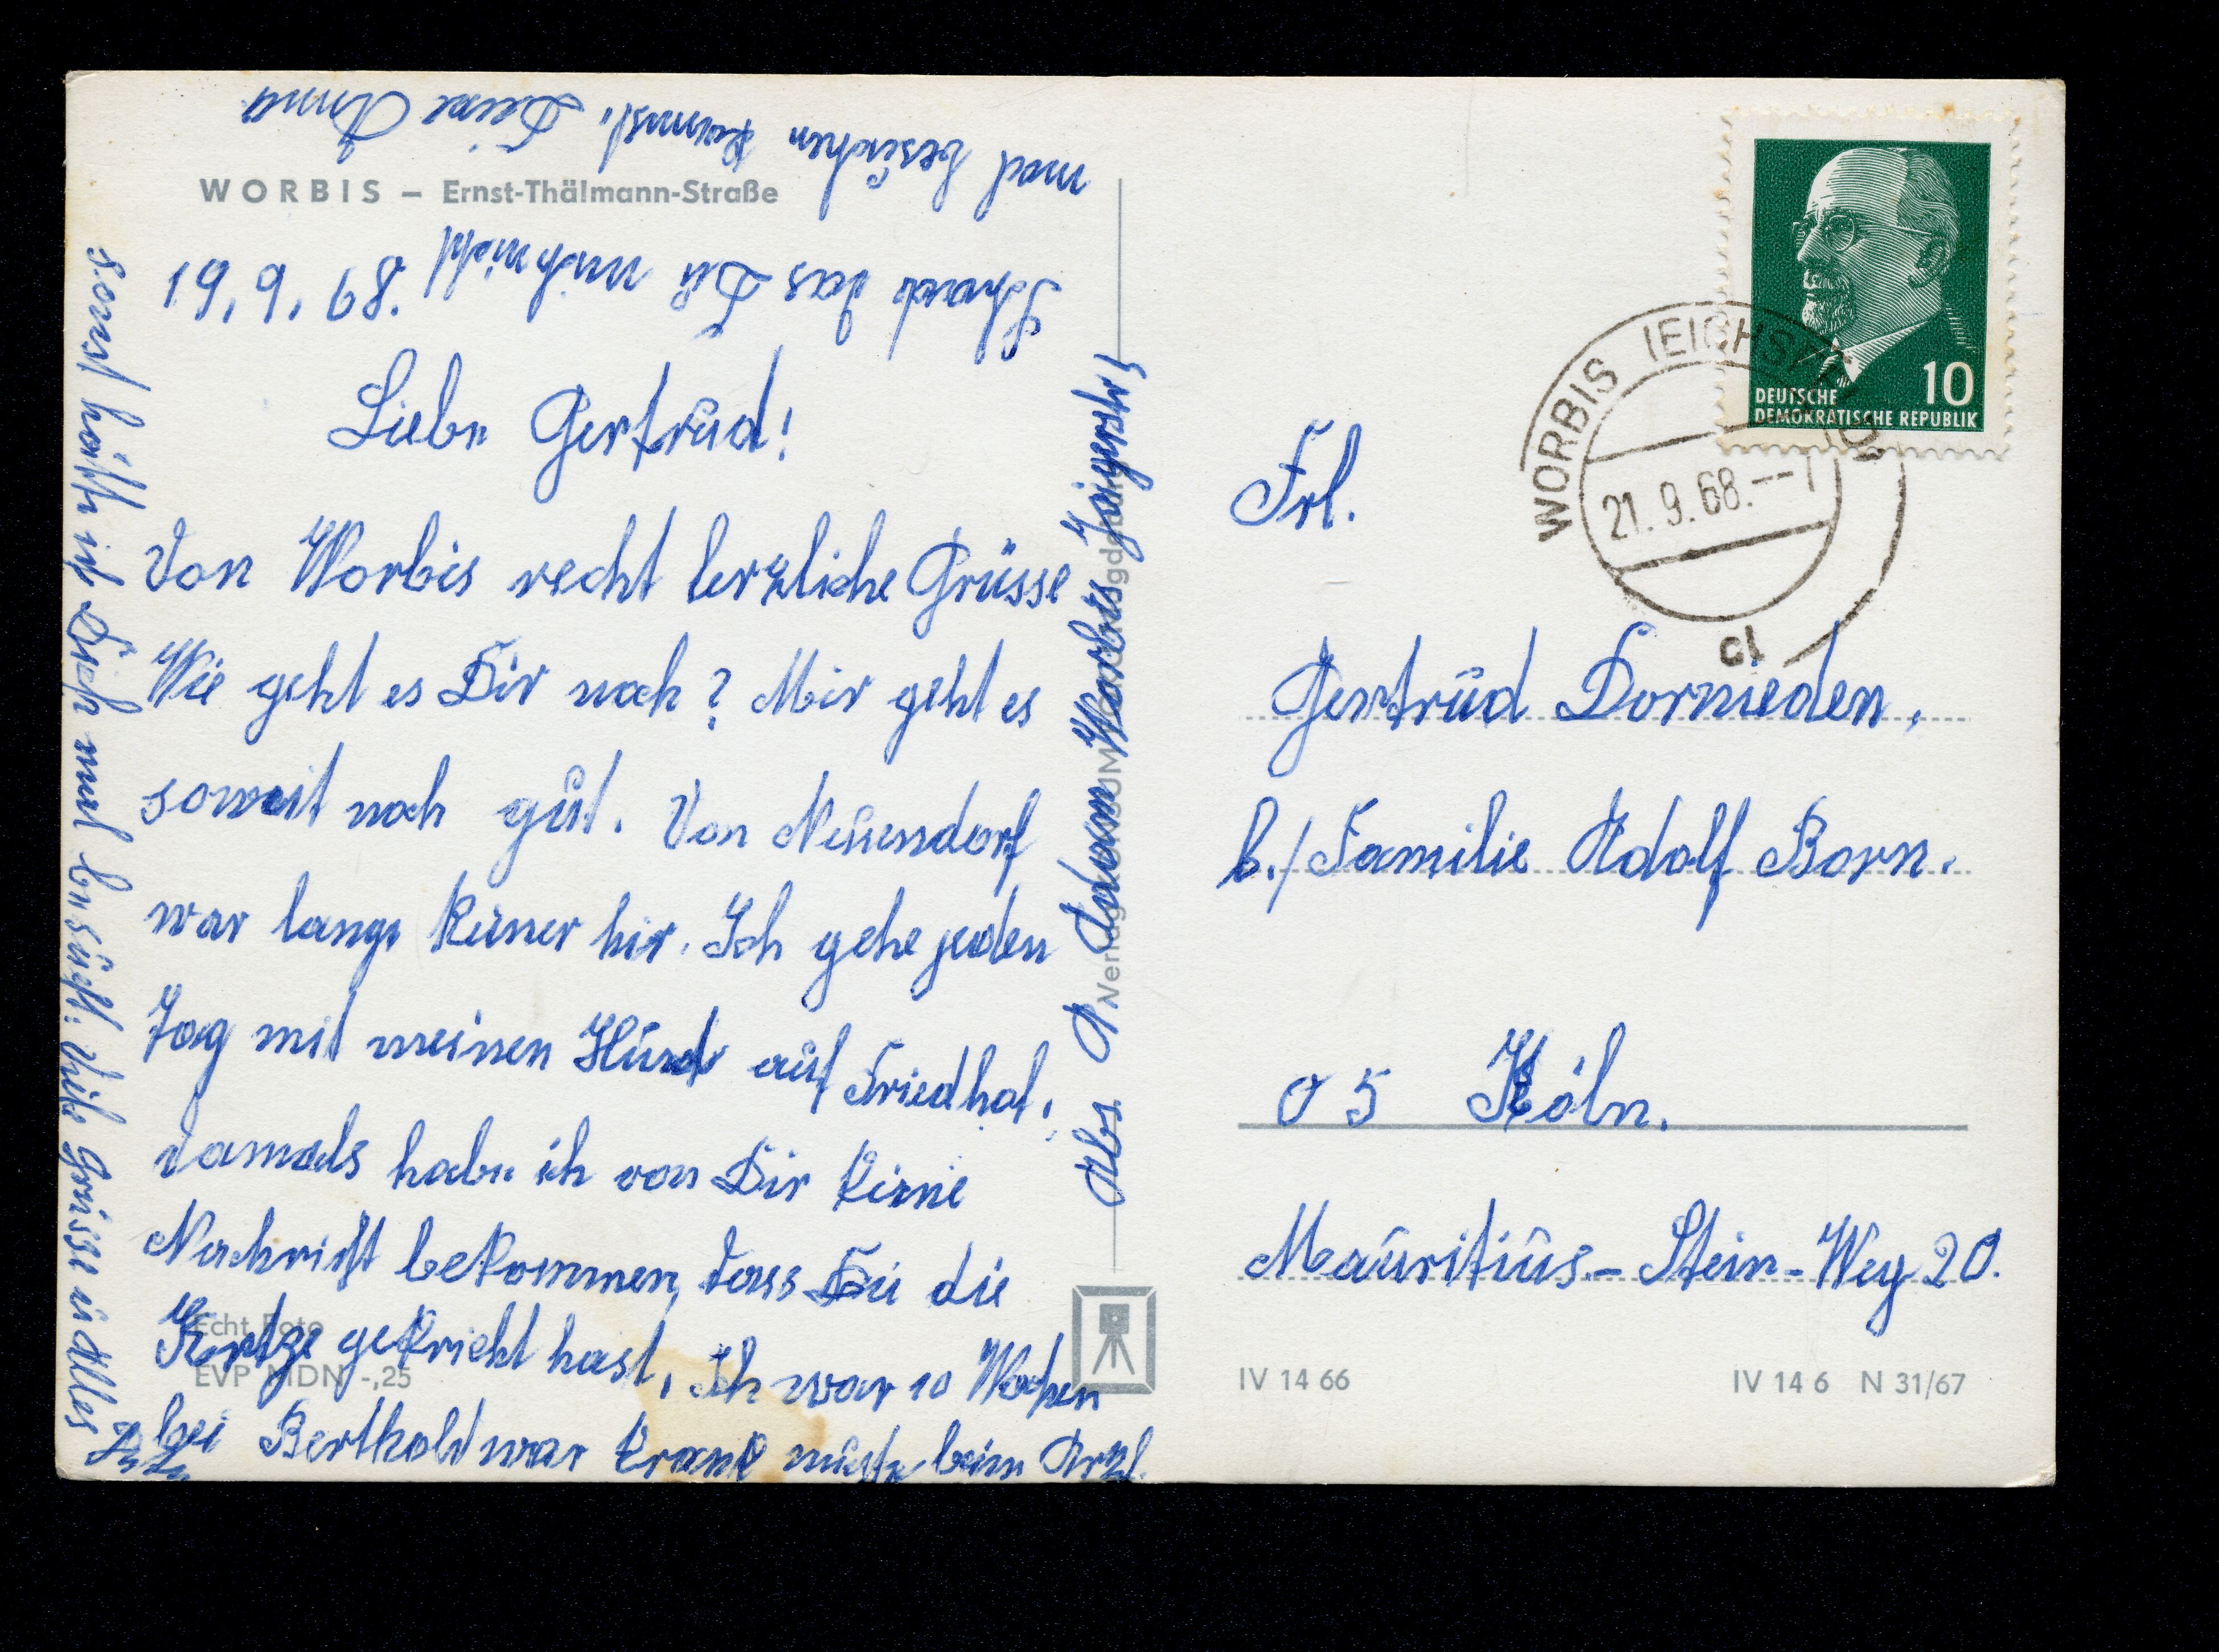 WORBIS – Ernst-Thälmann-Straße
19.9.68.
Liebe Gertrud!
Von Worbis recht lerzliche Grüsse
Wie geht es Dir noch? Mir geht es
soweit noch gut. Von Neuendorf
war lange keiner hir. Ich gehe jeden
Tag mit meinen Hund auf Friedhof.
damals habe ich von Dir keine
Nachricht bekommen, dass Du die
gekricht hast, Ich war 10 Wochen
bei Berthold war krank muste beim Arzt.
sonst hätte ich Dich mal besucht. Viele Grüsse u Alles
Gute
Schade das Du mich nicht
mal besuchen kannst. Deine Anna
Echt Foto
EVP MDN -,25
Abs. A. Adam Worbis Jägerstr 5
DEUTSCHE
DEMOKRATISCHE REPUBLIK
10
WORBIS (EICHSFELD)
21.9.68.--
Frl.
Gertrud Dornieden.
b./Familie Adolf Born.
05 Köln.
Mauritius-Stein-Weg 20.
IV 14 66
IV 14 6 N 31/67